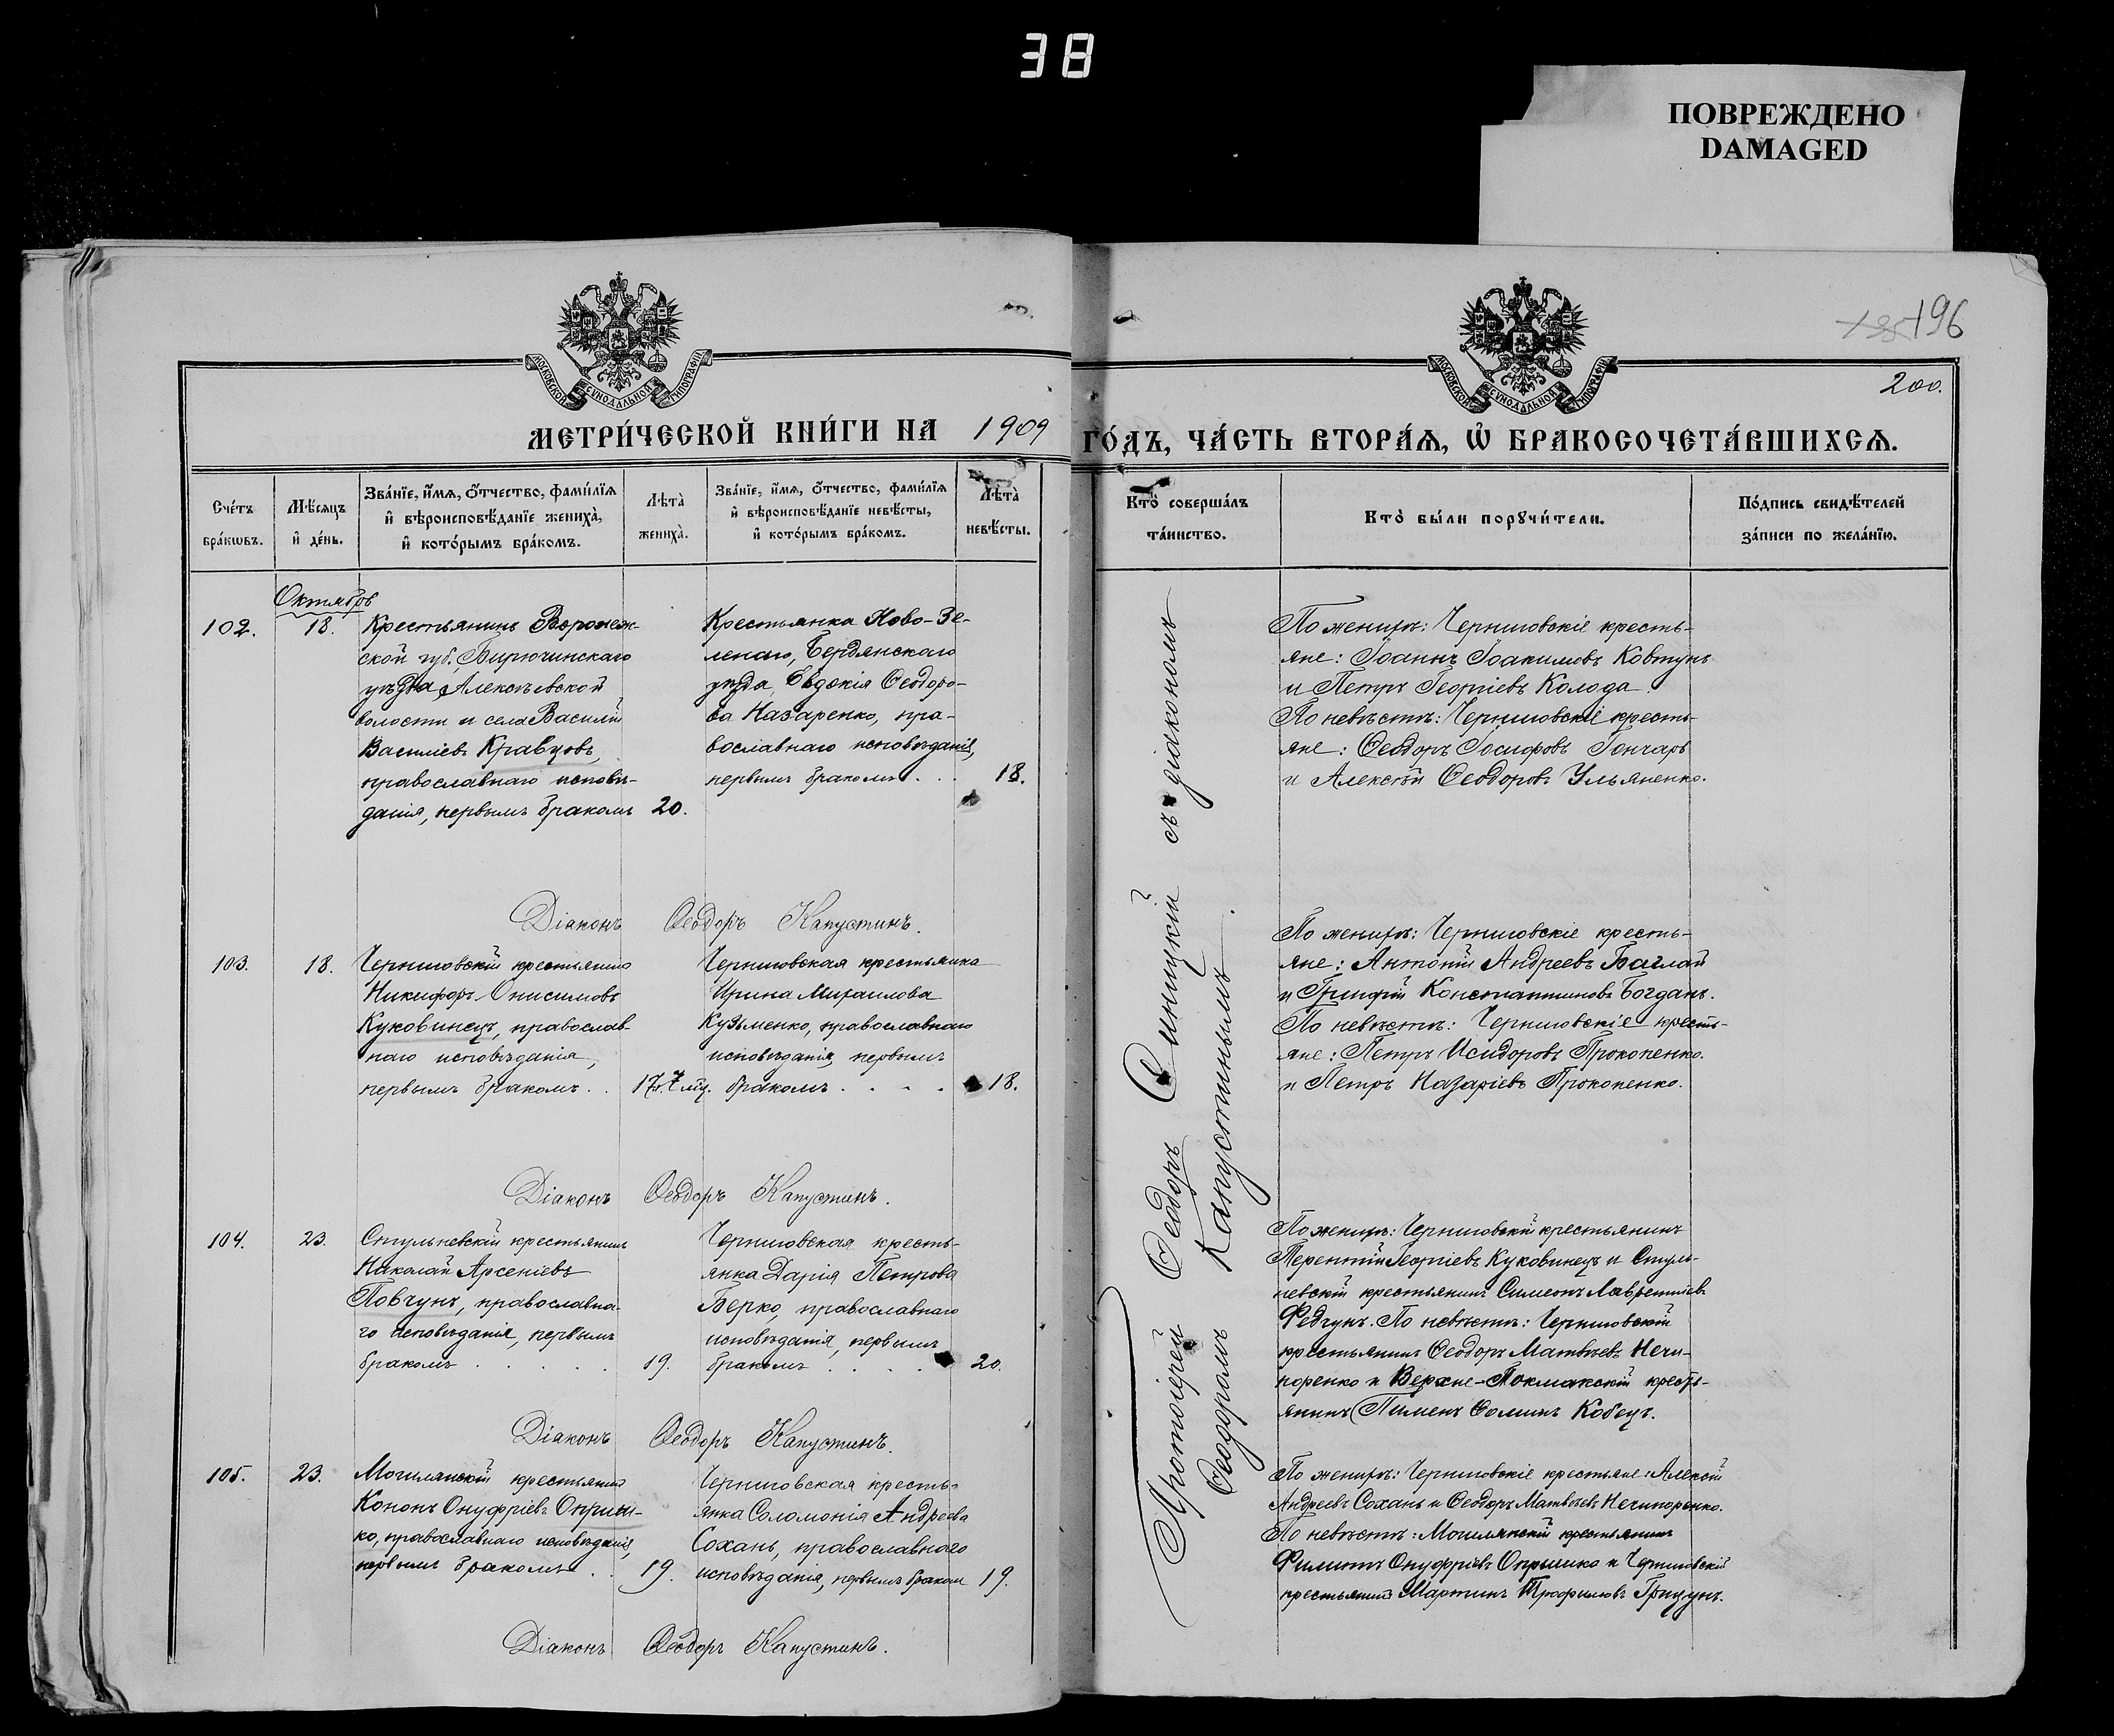 38
ПОВРЕЖДЕНО
DAMAGED
196
200.
МОСКОВСКОЙ СѴНОДАЛЬНОЙ ТИПОГРАФІИ
МОСКОВСКОЙ СѴНОДАЛЬНОЙ ТИПОГРАФІИ
МЕТРИ́ЧЕСКОЙ КНИ́ГИ НА 1909 ГО́ДЪ, ЧА́СТЬ ВТОРА́Ѧ, Ѽ БРАКОСОЧЕТА́ВШИХСѦ.
Сче́тъ
бра́кѡвъ.
Мѣ́сѧцъ
и҆ де́нь.
Зва́нїе, и҆́мѧ, о҆́тчество, фами́лїѧ
и҆ вѣроисповѣ́данїе жениха̀,
и҆ кото́рымъ бра́комъ.
Лѣта̀
жениха̀.
Зва́нїе, и҆́мѧ, о҆́тчество, фами́лїѧ
и҆ вѣроисповѣ́данїе невѣ́сты,
и҆ кото́рымъ бра́комъ.
Лѣта̀
невѣ́сты.
Кто̀ соверша́лъ
та́инство.
Кто̀ бы́ли порꙋчи́тели.
По́дпись свидѣ́телей
за́писи по жела́нїю.
Октябрь
102.
18.
Крестьянинъ Воронеж-
ской губ. Бирючинскаго
уѣзда, Алексѣевской
волости и села Василій
Василіевъ Кравцовъ,
православнаго исповѣ-
данія, первымъ бракомъ
20.
Крестьянка Ново-Зе-
ленаго, Бердянскаго
уѣзда, Евдокія Ѳеодоро-
ва Назаренко, пра-
вославнаго исповѣданія,
первымъ бракомъ . .
18.
По женихѣ: Черниговскіе кресть-
яне: Іоаннъ Іоакимовъ Ковтунъ
и Петръ Георгіевъ Колода.
По невѣстѣ: Черниговскіе кресть-
яне: Ѳеодоръ Іосифовъ Гончаръ
и Алексѣй Ѳеодоровъ Ульяненко.
Діаконъ Ѳеодоръ Капустинъ.
103.
18.
Черниговскій крестьянинъ
Никифоръ Онисимовъ
Куковинецъ, православ-
наго исповѣданія,
первымъ бракомъ. .
17 г. 7 мѣс.
Черниговская крестьянка
Ирина Михаилова
Кузьменко, православнаго
исповѣданія, первымъ
бракомъ . . . .
18.
По женихѣ: Черниговскіе кресть-
яне: Антоній Андреевъ Баглай
и Григорій Константиновъ Богданъ.
По невѣстѣ: Черниговскіе кресть-
яне: Петръ Исидоровъ Прокопенко.
и Петръ Назаріевъ Прокопенко.
Діаконъ Ѳеодоръ Капустинъ.
104.
23.
Стульневскій крестьянинъ
Николай Арсеніевъ
Повчунъ, православна-
го исповѣданія, первымъ
бракомъ . . . . .
19.
Черниговская кресть-
янка Дарія Петрова
Берко, православнаго
исповѣданія, первымъ
бракомъ . . . .
20.
По женихѣ: Черниговскій крестьянинъ
Терентій Георгіевъ Куковинецъ и Стуль-
невскій крестьянинъ Симеонъ Лаврентіевъ
Федчунъ. По невѣстѣ: Черниговскій
крестьянинъ Ѳеодоръ Матвѣевъ Нечи-
поренко и Верхне-Токмакскій кресть-
янинъ Пименъ Ѳоминъ Кобецъ.
Діаконъ Ѳеодоръ Капустинъ.
105.
23.
Могилянскій крестьянинъ
Кононъ Онуфріевъ Опрыш-
ко, православнаго исповѣданія,
первымъ бракомъ . .
19.
Черниговская кресть-
янка Соломонія Андреева
Сохань, православнаго
исповѣданія, первымъ бракомъ
19.
По женихѣ: Черниговскіе крестьяне: Алексій
Андреевъ Сохань и Ѳеодоръ Матвѣевъ Нечипоренко.
По невѣстѣ: Могилянскій крестьянинъ
Филиппъ Онуфріевъ Опрышко и Черниговскій
крестьянинъ Мартинъ Трофимовъ Грицунъ.
Діаконъ Ѳеодоръ Капустинъ.
Протоіерей Ѳеодоръ Синицкій съ діакономъ
Ѳеодоромъ Капустинымъ.